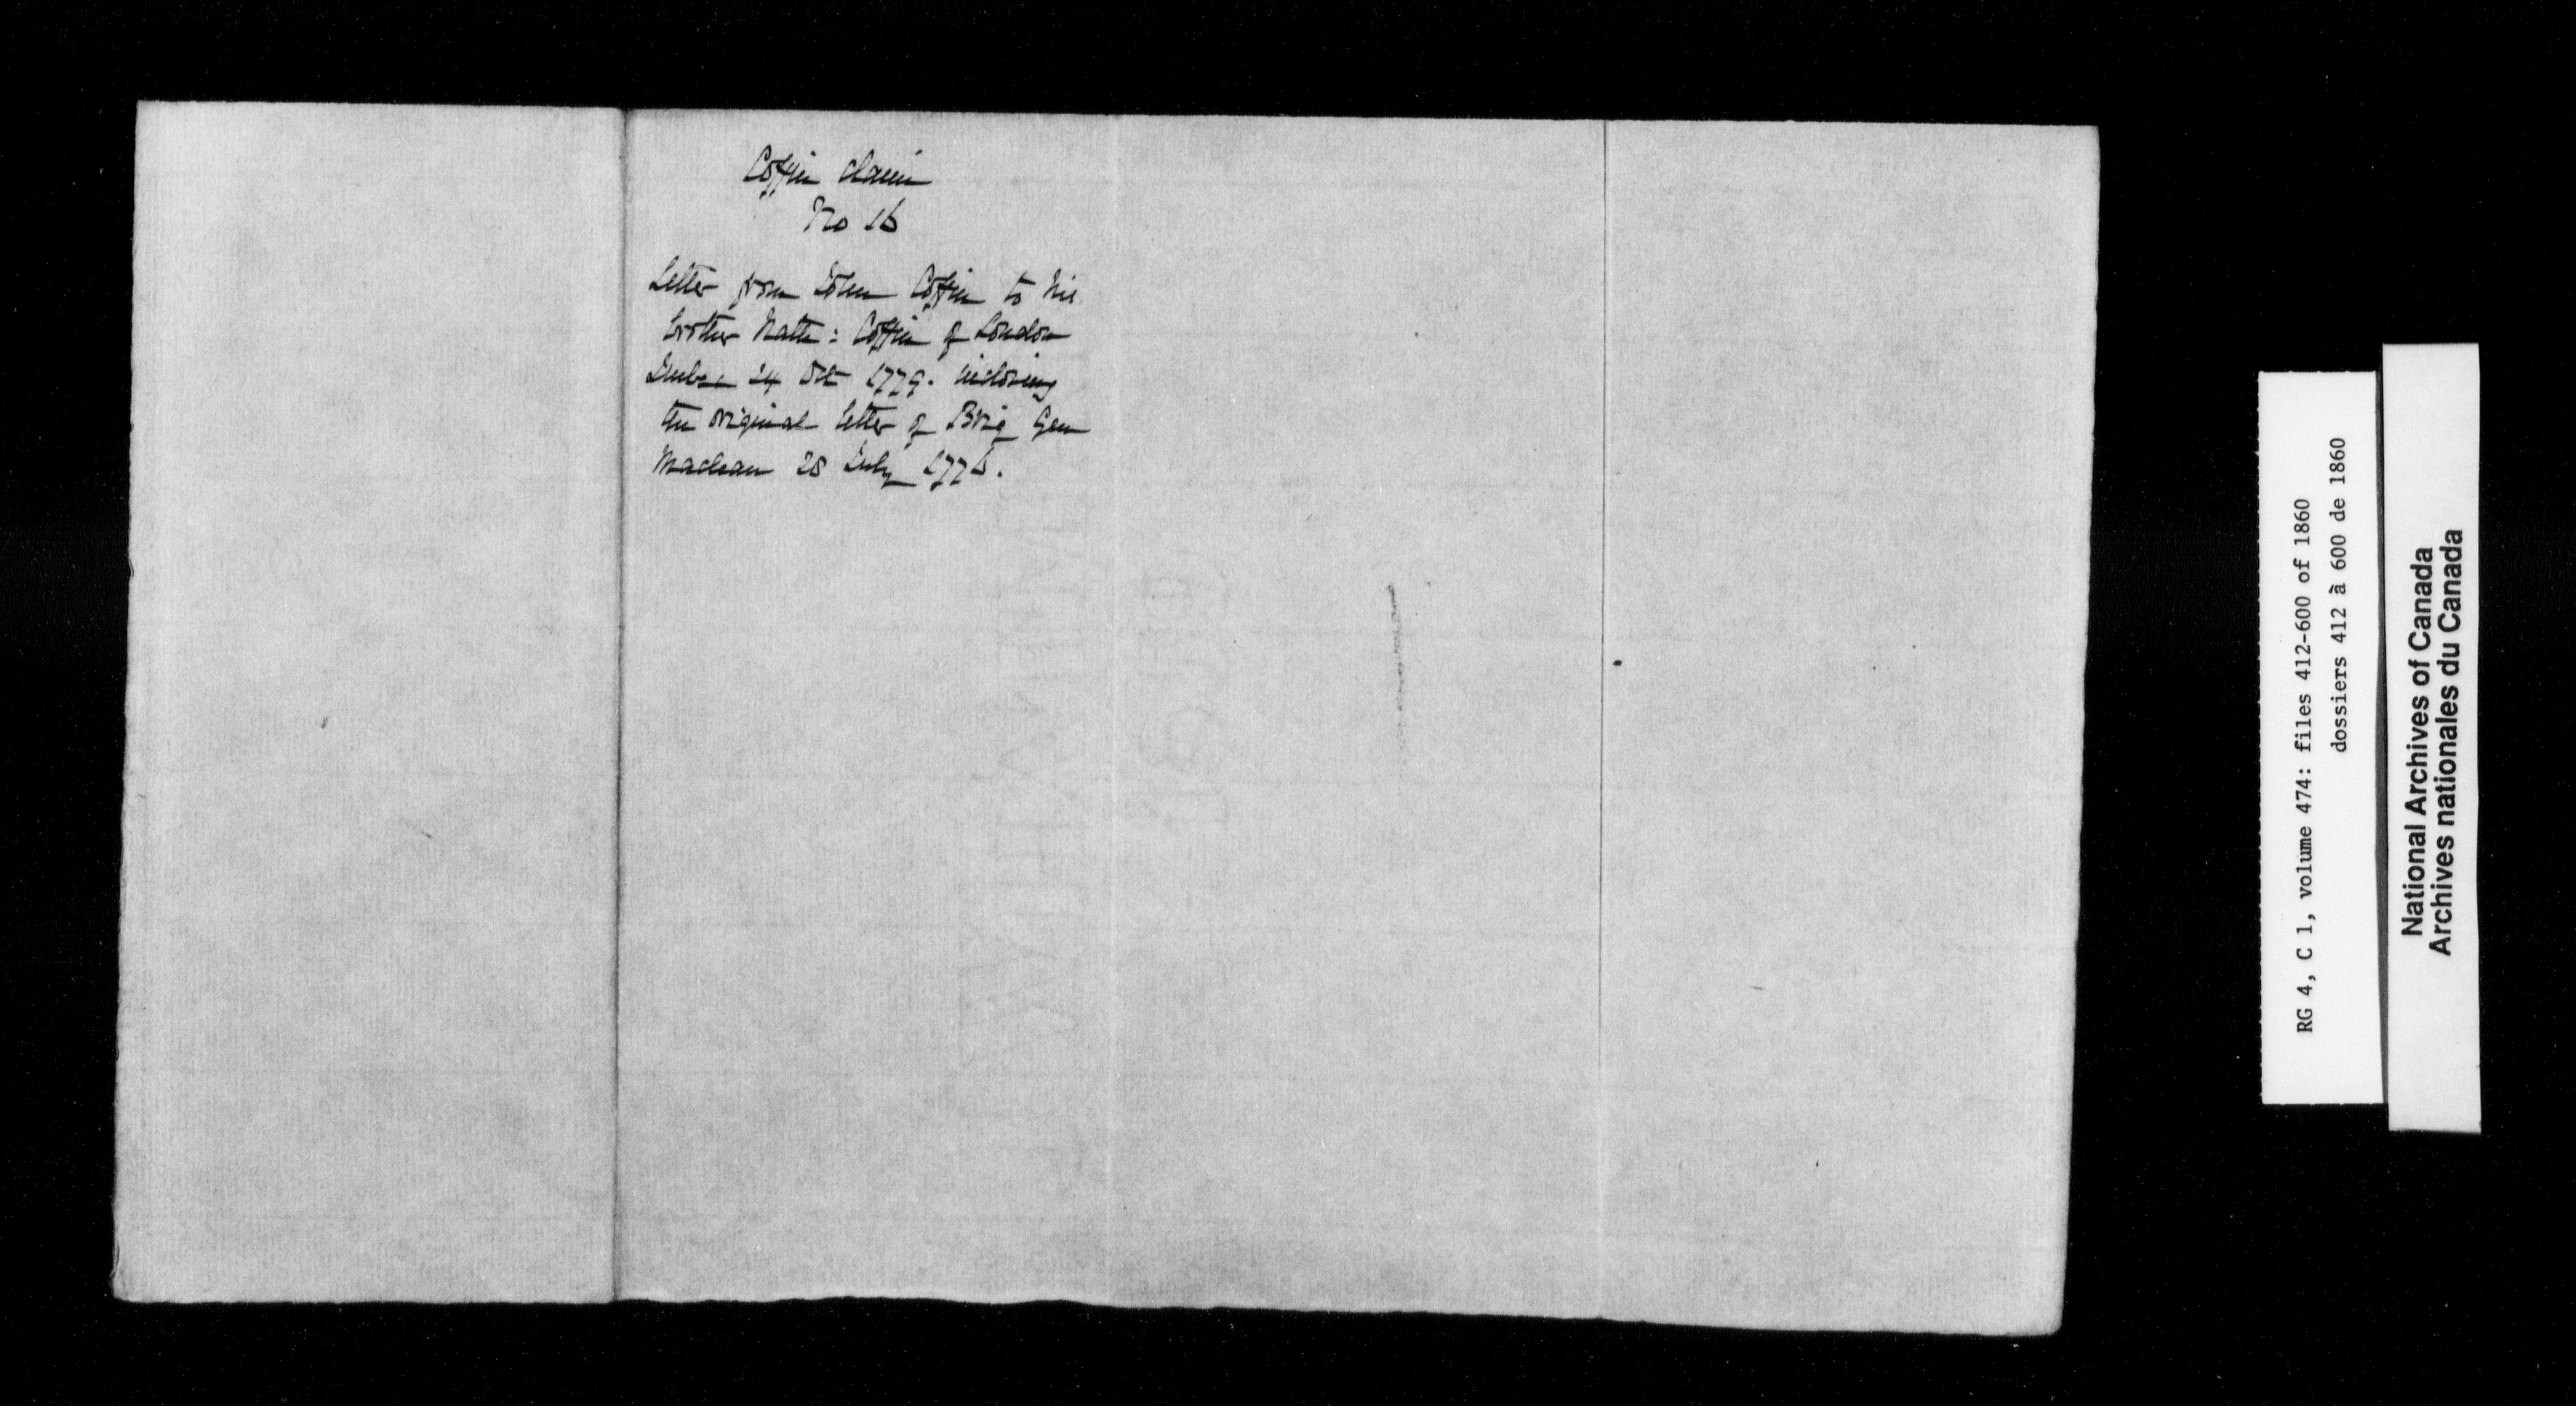 Coffin claim
No 16
Letter from John Coffin to his
brother Nath: Coffin of London
Quebec 24 Oct 1779. inclosing
the original letter of Brig Gen
Maclean 28 July 1776.
RG 4, C 1, volume 474: files 412-600 of 1860
dossiers 412 à 600 de 1860
National Archives of Canada
Archives nationales du Canada